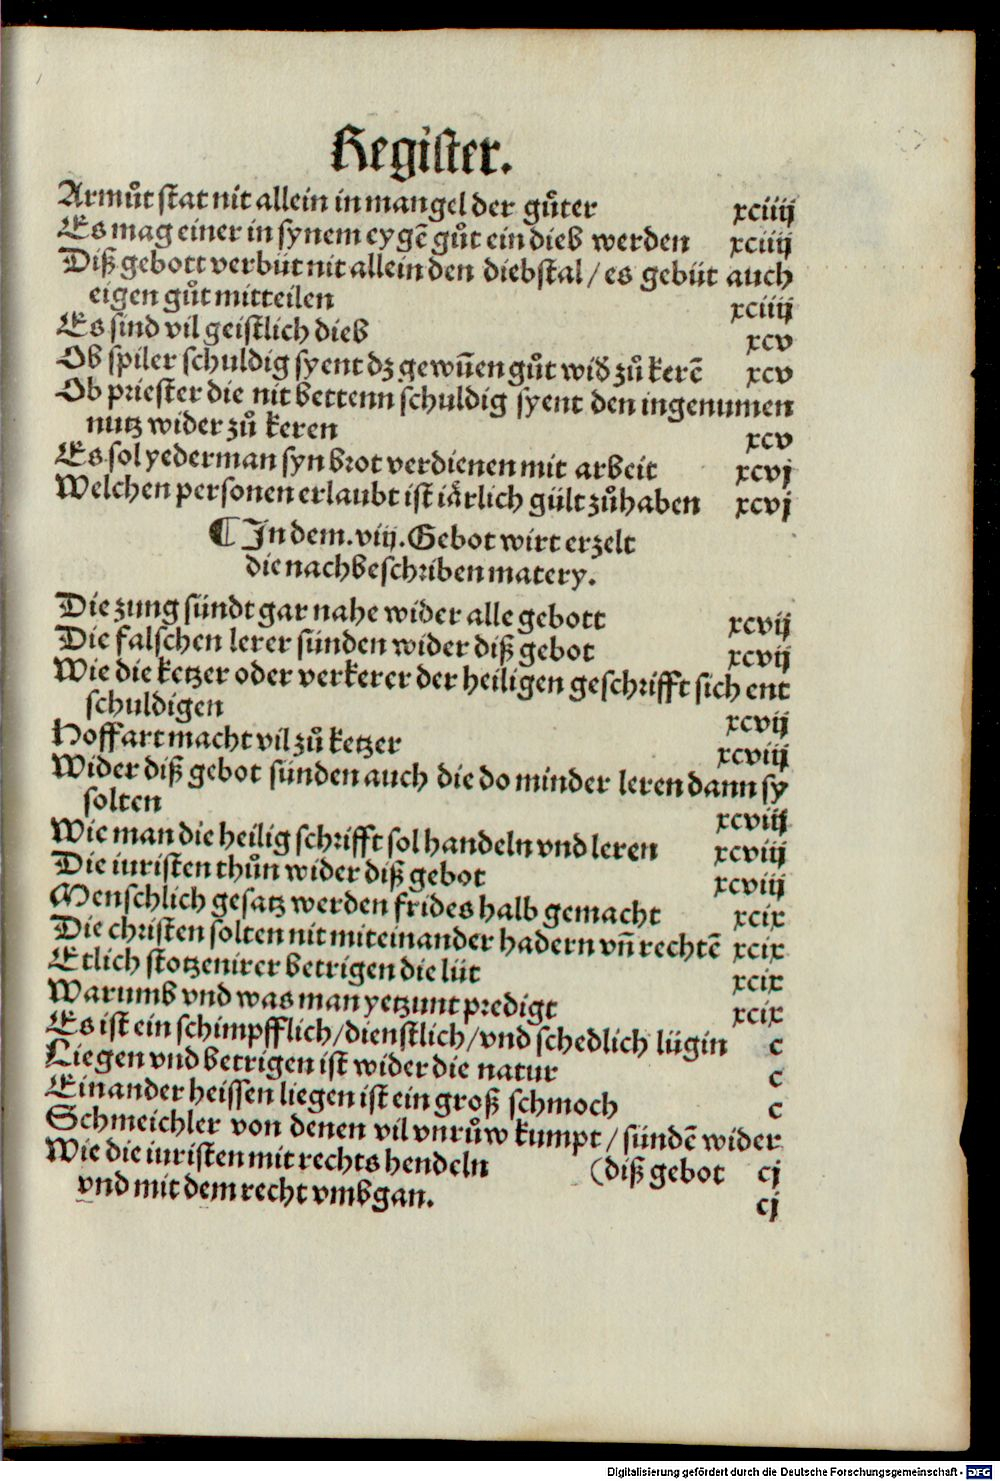 Register.
Armůt stat nit allein in mangel der gůter xciiij
Es mag einer in synem eygē gůt ein dieb werden xciiij
Diß gebott verbüt nit allein den diebstal / es gebüt auch
eigen gůt mitteilen xciiij
Es sind vil geistlich dieb xcv
Ob spiler schuldig syent dz gewūen gůt wid̕ zů kerē xcv
Ob priester die nit bettenn schuldig syent den ingenumen
nutz wider zů keren xcv
Es sol yederman syn brot verdienen mit arbeit xcvj
Welchen personen erlaubt ist iärlich gült zůhaben xcvj
¶ In dem .viij. Gebot wirt erzelt
die nachbeschriben matery.
Die zung sündt gar nahe wider alle gebott xcvij
Die falschen lerer sünden wider diß gebot xcvij
Wie die ketzer oder verkerer der heiligen geschrifft sich ent
schuldigen xcvij
Hoffart macht vil zů ketzer xcviij
Wider diß gebot sünden auch die do minder leren dann sy
solten xcviij
Wie man die heilig schrifft sol handeln vnd leren xcviij
Die iuristen thůn wider diß gebot xcviij
Menschlich gesatz werden frides halb gemacht xcix
Die christen solten nit miteinander hadern vñ rechtē xcix
Etlich stotzenirer betrigen die lüt xcix
Warumb vnd was man yetzunt predigt xcix
Es ist ein schimpfflich/dienstlich/vnd schedlich lügin c
Liegen vnd betrigen ist wider die natur c
Einander heissen liegen ist ein groß schmoch c
Schmeichler von denen vil vnrůw kumpt / sündē wider
Wie die iuristen mit rechts hendeln (diß gebot cj
vnd mit dem recht vmbgan. cj
Digitalisierung gefördert durch die Deutsche Forschungsgemeinschaft - DFG